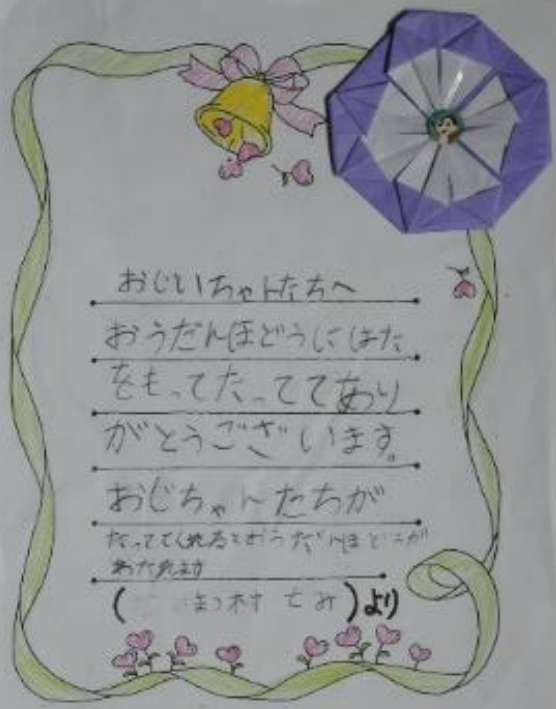 おじいちゃんたちへ
おうだんほどうにはた
をもってたっててあり
がとうございます。
おじちゃんたちが
たっててくれるとおうだんほどうが
わたれます
( 村 )より